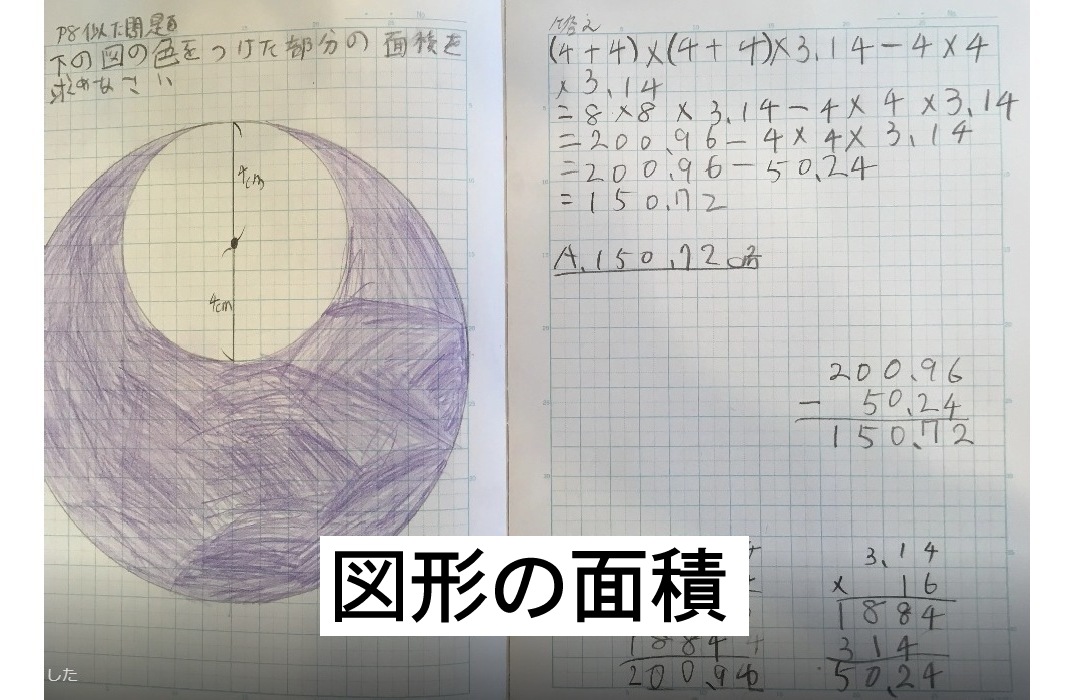 P8似た問題
下の図の色をつけた部分の面積を
求めなさい
4cm
4cm
答え
(4+4)×(4+4)×3.14-4×4
×3.14
=8×8×3.14-4×4×3.14
=200.96-4×4×3.14
=200.96-50.24
=150.72
A.150.72cm²
200.96
- 50.24
150.72
3.14
× 16
1884
314
50.24
1884
200.96
図形の面積
した